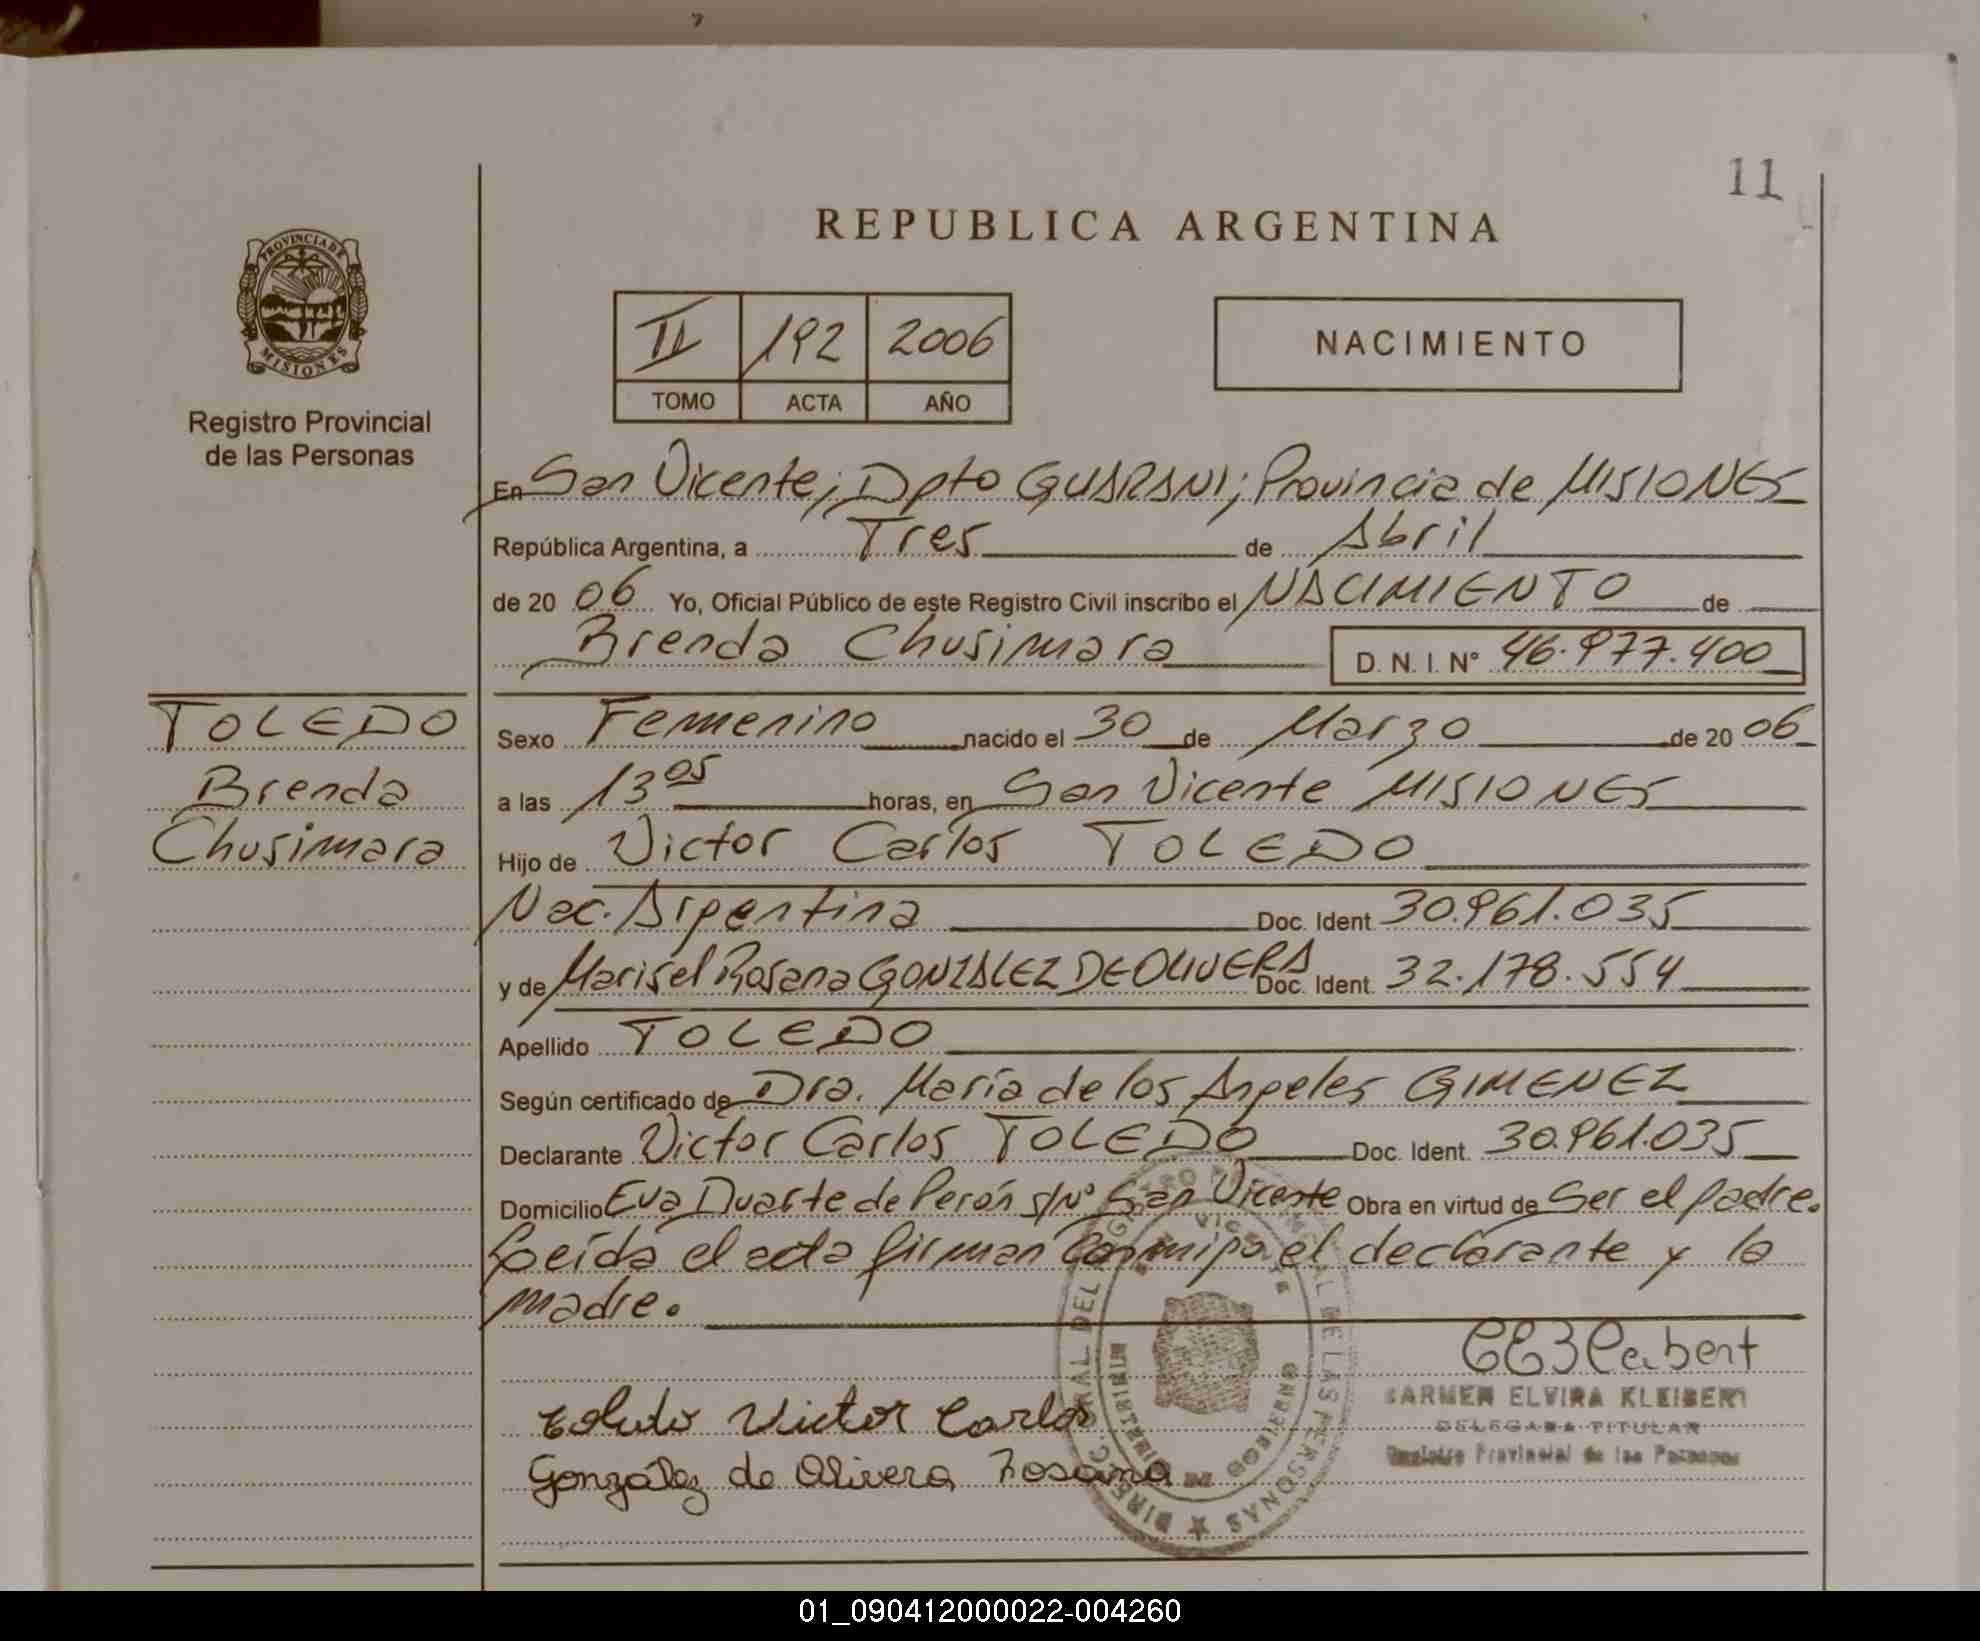 11
REPUBLICA ARGENTINA
PROVINCIA DE
MISIONES
Registro Provincial
de las Personas
II 192 2006
TOMO ACTA AÑO
NACIMIENTO
En San Vicente; Dpto GUARANI; Provincia de MISIONES
República Argentina, a Tres de Abril
de 20 06 Yo, Oficial Público de este Registro Civil inscribo el NACIMIENTO de
Brenda Chusimara D. N. I. Nº 46.977.400
TOLEDO
Brenda
Chusimara
Sexo Femenino nacido el 30 de Marzo de 20 06
a las 13 05 horas, en San Vicente MISIONES
Hijo de Victor Carlos TOLEDO
Nac. Argentina Doc. Ident. 30.961.035
y de Marisel Rosana GONZALEZ DE OLIVERA Doc. Ident. 32.178.554
Apellido TOLEDO
Según certificado de Dra. María de los Angeles GIMENEZ
Declarante Victor Carlos TOLEDO Doc. Ident. 30.961.035
Domicilio Eva Duarte de Perón s/Nº San Vicente Obra en virtud de Ser el padre.
Leída el acta firman conmigo el declarante y la
madre.
CARMEN ELVIRA KLEIBERT
DELEGADA TITULAR
Registro Provincial de las Personas
Toledo Victor Carlos
González de Olivera Rosana
01_090412000022-004260